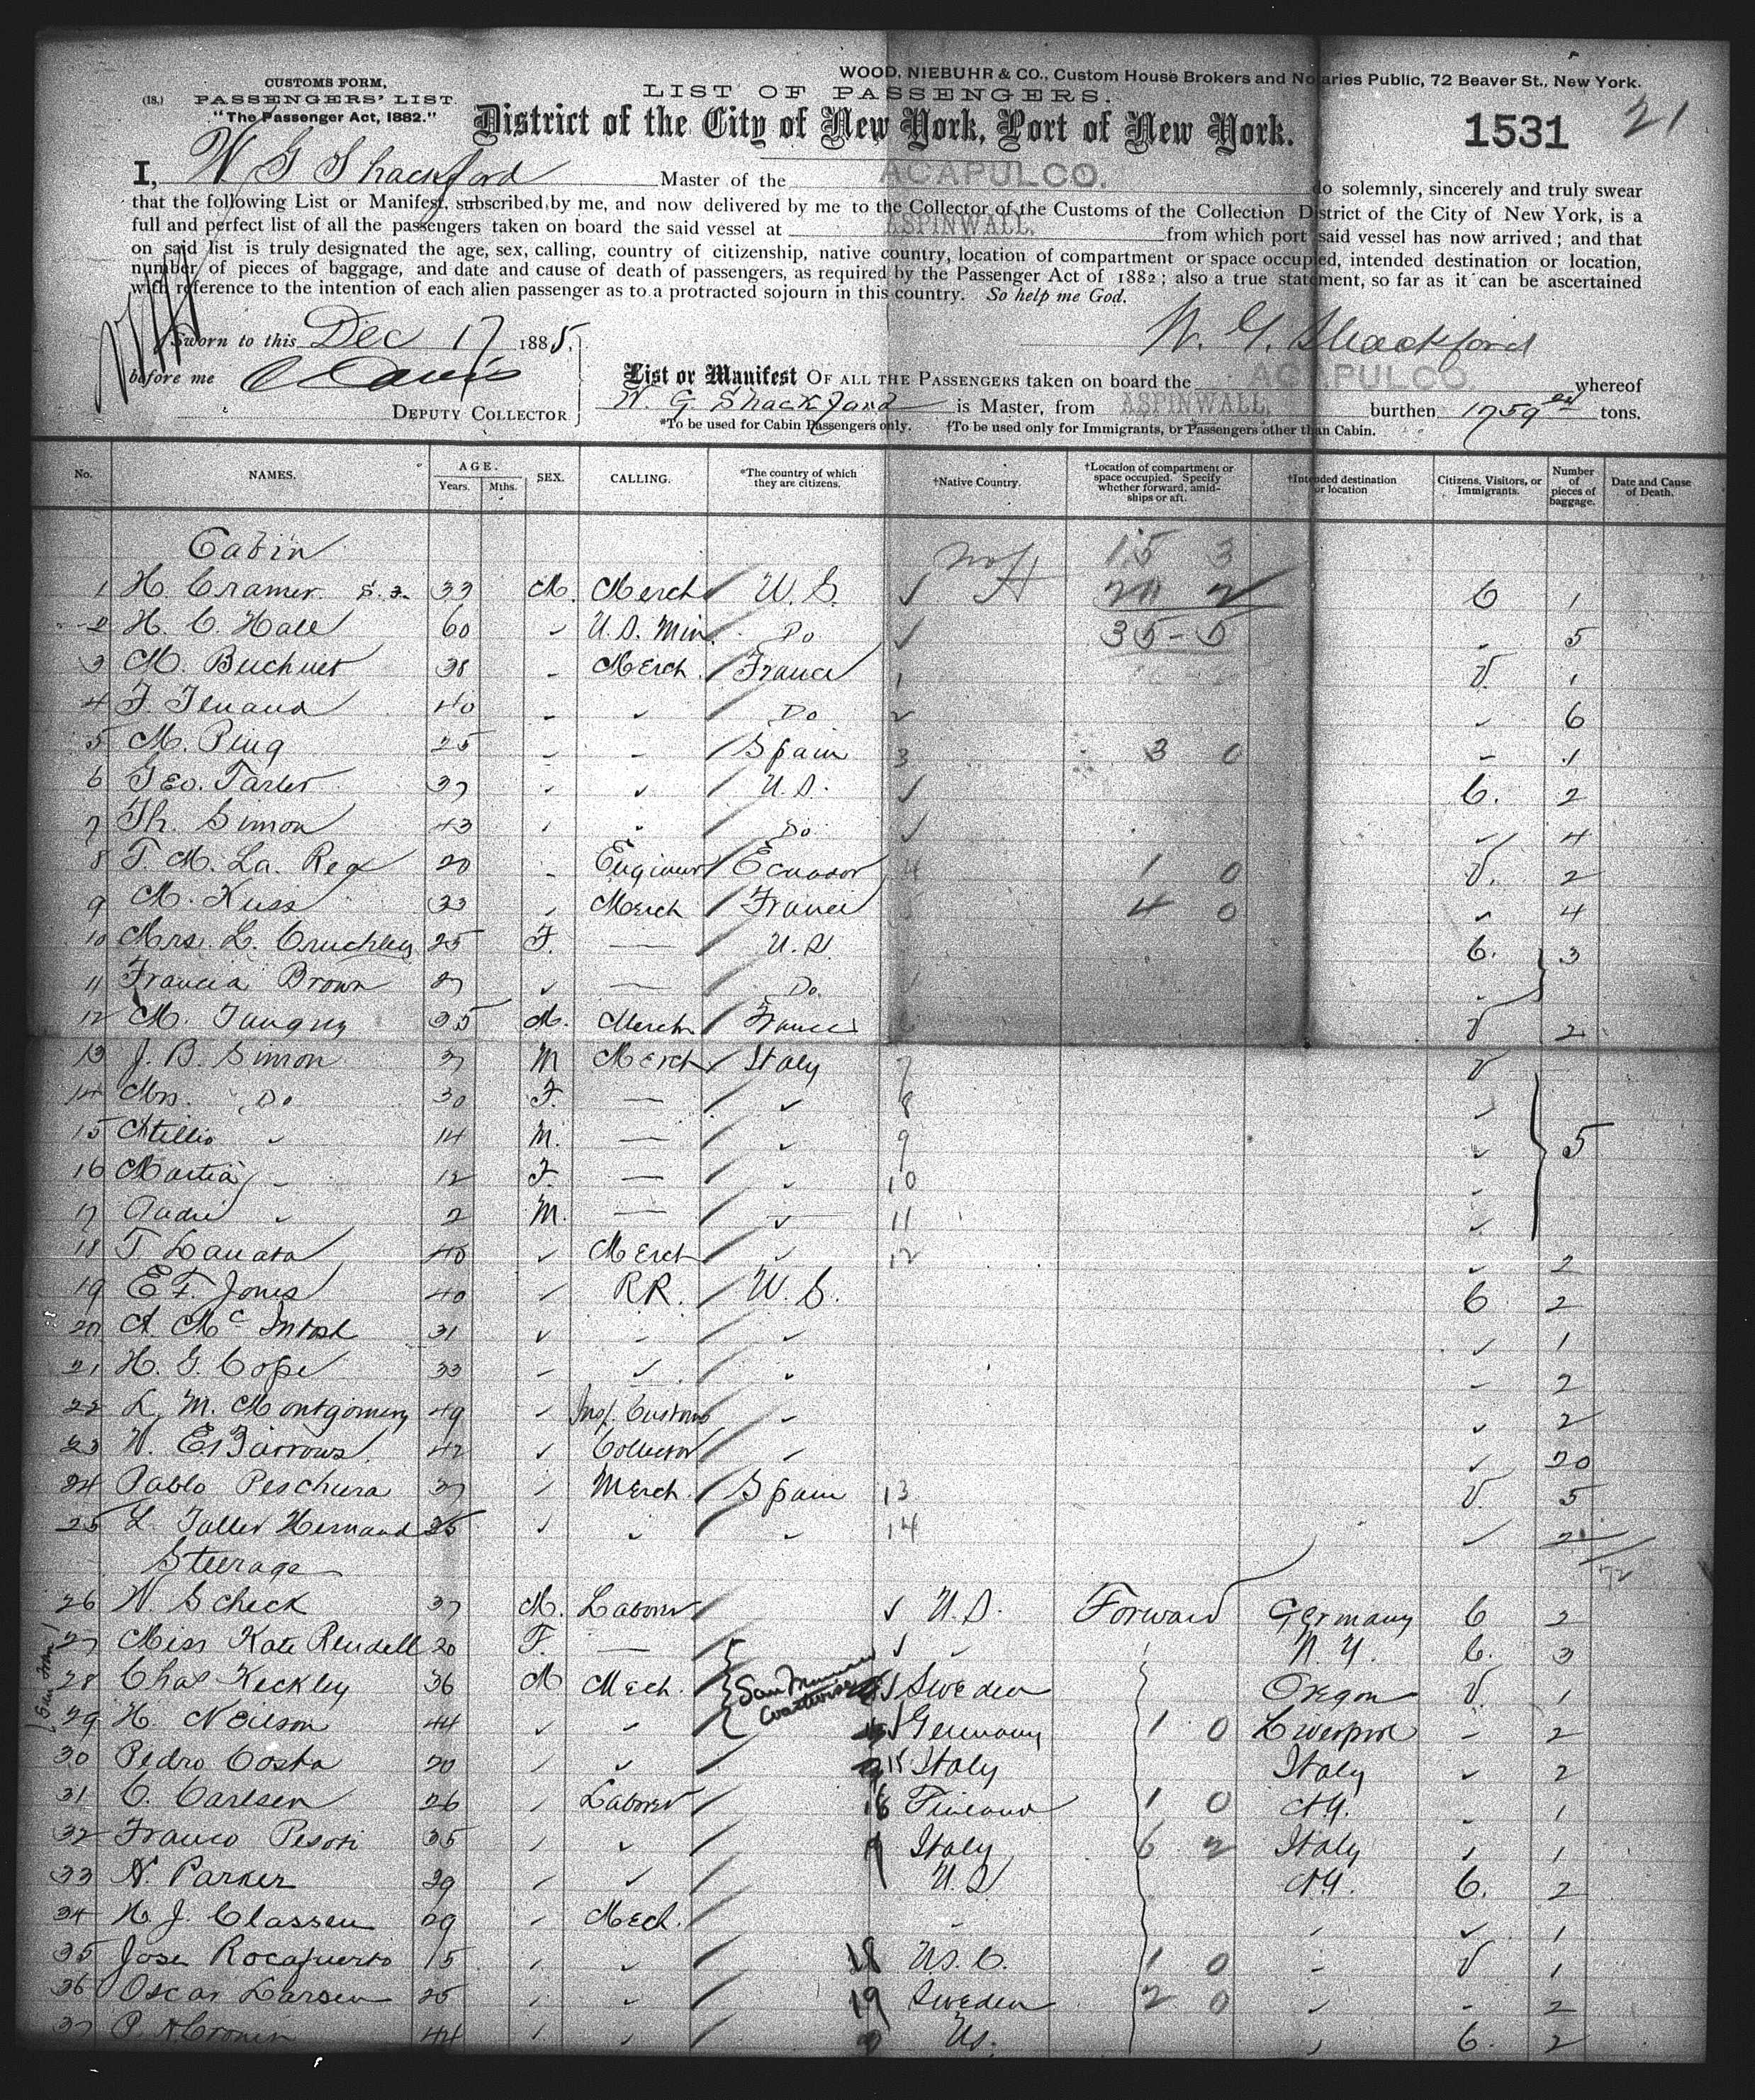 WOOD, NIEBUHR & CO., Custom House Brokers and Notaries Public, 72 Beaver St., New York.
CUSTOMS FORM,
(18.) PASSENGERS' LIST.
"The Passenger Act, 1882."
LIST OF PASSENGERS.
21
District of the City of New York, Port of New York.
1531
I, W G Shackford Master of the ACAPULCO. do solemnly, sincerely and truly swear
that the following List or Manifest, subscribed by me, and now delivered by me to the Collector of the Customs of the Collection District of the City of New York, is a
full and perfect list of all the passengers taken on board the said vessel at ASPINWALL. from which port said vessel has now arrived; and that
on said list is truly designated the age, sex, calling, country of citizenship, native country, location of compartment or space occupied, intended destination or location,
number of pieces of baggage, and date and cause of death of passengers, as required by the Passenger Act of 1882; also a true statement, so far as it can be ascertained
with reference to the intention of each alien passenger as to a protracted sojourn in this country. So help me God.
Sworn to this Dec 17 1885.
W. G. Shackford
before me
DEPUTY COLLECTOR
List or Manifest OF ALL THE PASSENGERS taken on board the ACAPULCO. whereof
W. G. Shackford is Master, from ASPINWALL. burthen 1759 tons.
*To be used for Cabin Passengers only. †To be used only for Immigrants, or Passengers other than Cabin.
No. NAMES. AGE. Years. Mths. SEX. CALLING. *The country of which they are citizens. †Native Country. †Location of compartment or space occupied. Specify whether forward, amidships or aft. †Intended destination or location Citizens, Visitors, or Immigrants. Number of pieces of baggage. Date and Cause of Death.
Cabin 15 3
1 H. Cramer 33 M. Merch U.S. 20 2 C 1
2 H. C. Hall 60 U.S. Min. Do 35-5 5
3 M. 38 Merch France 1 V. 1
4 F. 40 Do 2 6
5 M. 25 Spain 3 3 0 1
6 Geo. 37 U.S. C. 2
7 Th. Simon 43 Do 4
8 T. M. La. Rea 20 Engineer Ecuador 4 1 0 V. 2
9 M. Kuss 33 Merch France 4 0 4
10 Mrs. L. Cruchley 25 F. — U.S. C. 3
11 Francia Brown — Do.
12 M. 35 M. Merch France V 2
13 J. B. Simon 37 M Merch Italy 7 V
14 Mrs. Do 30 F. — 8
15 Attilio 14 M. — 9 5
16 12 F. — 10
17 2 M. — 11
18 T. Lanata 40 Merch 12 2
19 E. F. Jones 40 RR. U.S. C 2
20 A. McIntosh 31 1
21 H. G. Cope 33 2
22 L. M. Montgomery 49 Insp. Customs 2
23 W. E. Barrows. 42 Collector 20
24 Pablo Peschiera 37 Merch. Spain 13 V. 5
25 L. 25 14 2
Steerage 72
26 W. Scheck 37 M. Laborer U.S. Forward Germany C 2
27 Miss Kate Rendell 20 F. — N.Y. C. 3
28 Chas Keckley 36 M Mech. Sweden Oregon V. 1
29 H. Neilson 44 Germany 1 0 Liverpool 2
30 Pedro Costa 20 15 Italy Italy 2
31 C. Carlsen 26 Laborer 16 Finland 1 0 N.Y. 1
32 Franco 35 Italy 6 2 Italy 1
33 N. Parker 29 U.S N.Y. C. 2
34 H. J. Classen 29 Mech. 1
35 Jose Rocafuerto 15 18 U.S.C. 1 0 V 1
36 Oscar Larsen 25 19 Sweden 2 0 2
37 P. A Cronin 44 US. C. 2